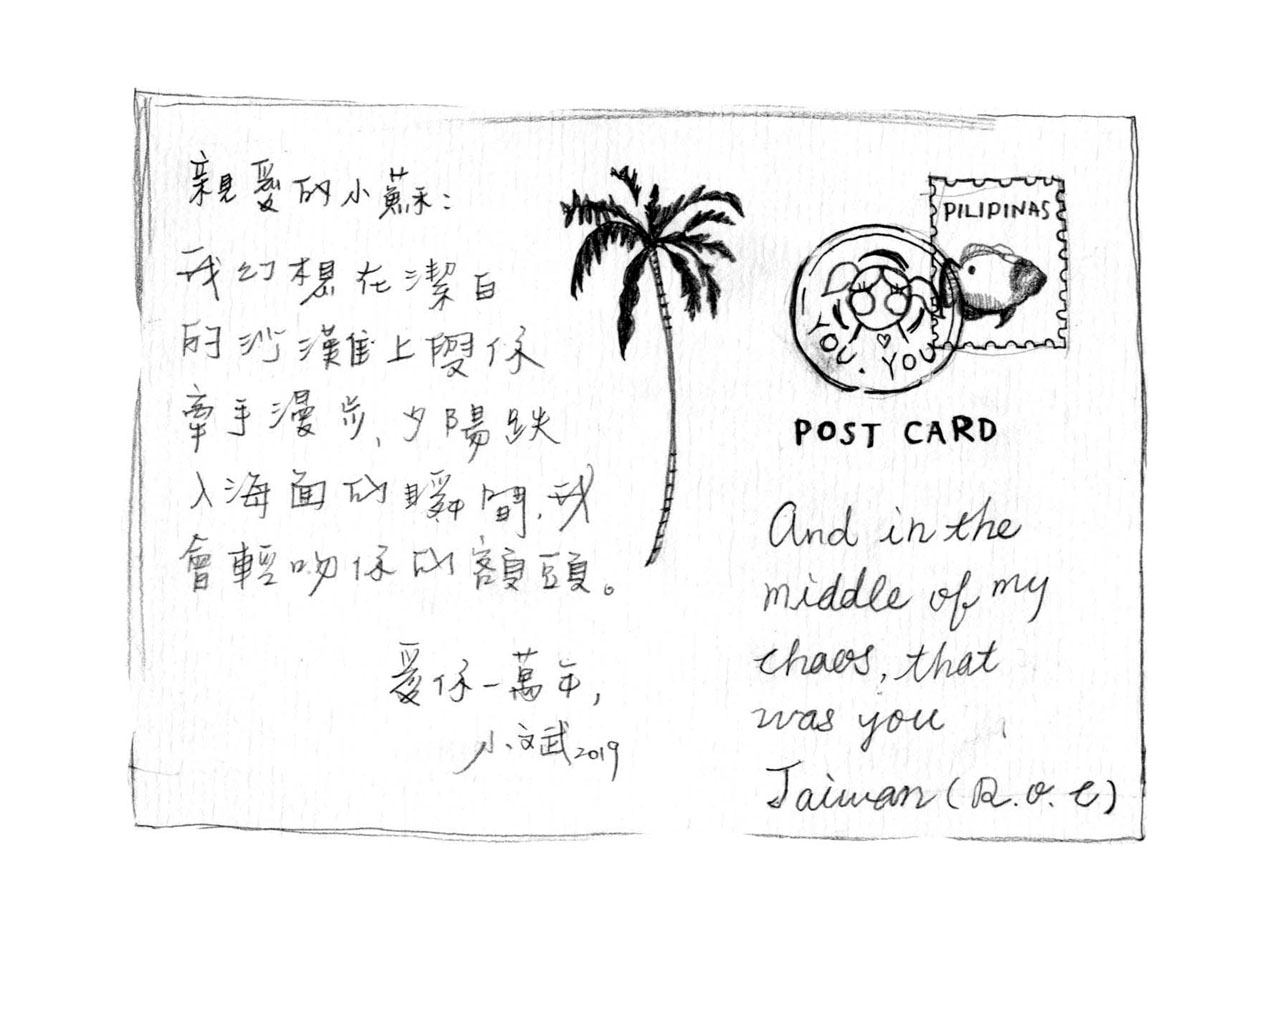 親愛的小蘇：
我幻想在潔白
的沙灘上與你
牽手漫步、夕陽跌
入海面的瞬間，我
會輕吻你的額頭。
愛你一萬年，
小文武2019
PILIPINAS
YOU. YOU
POST CARD
And in the
middle of my
chaos, that
was you
Taiwan (R.O.C)